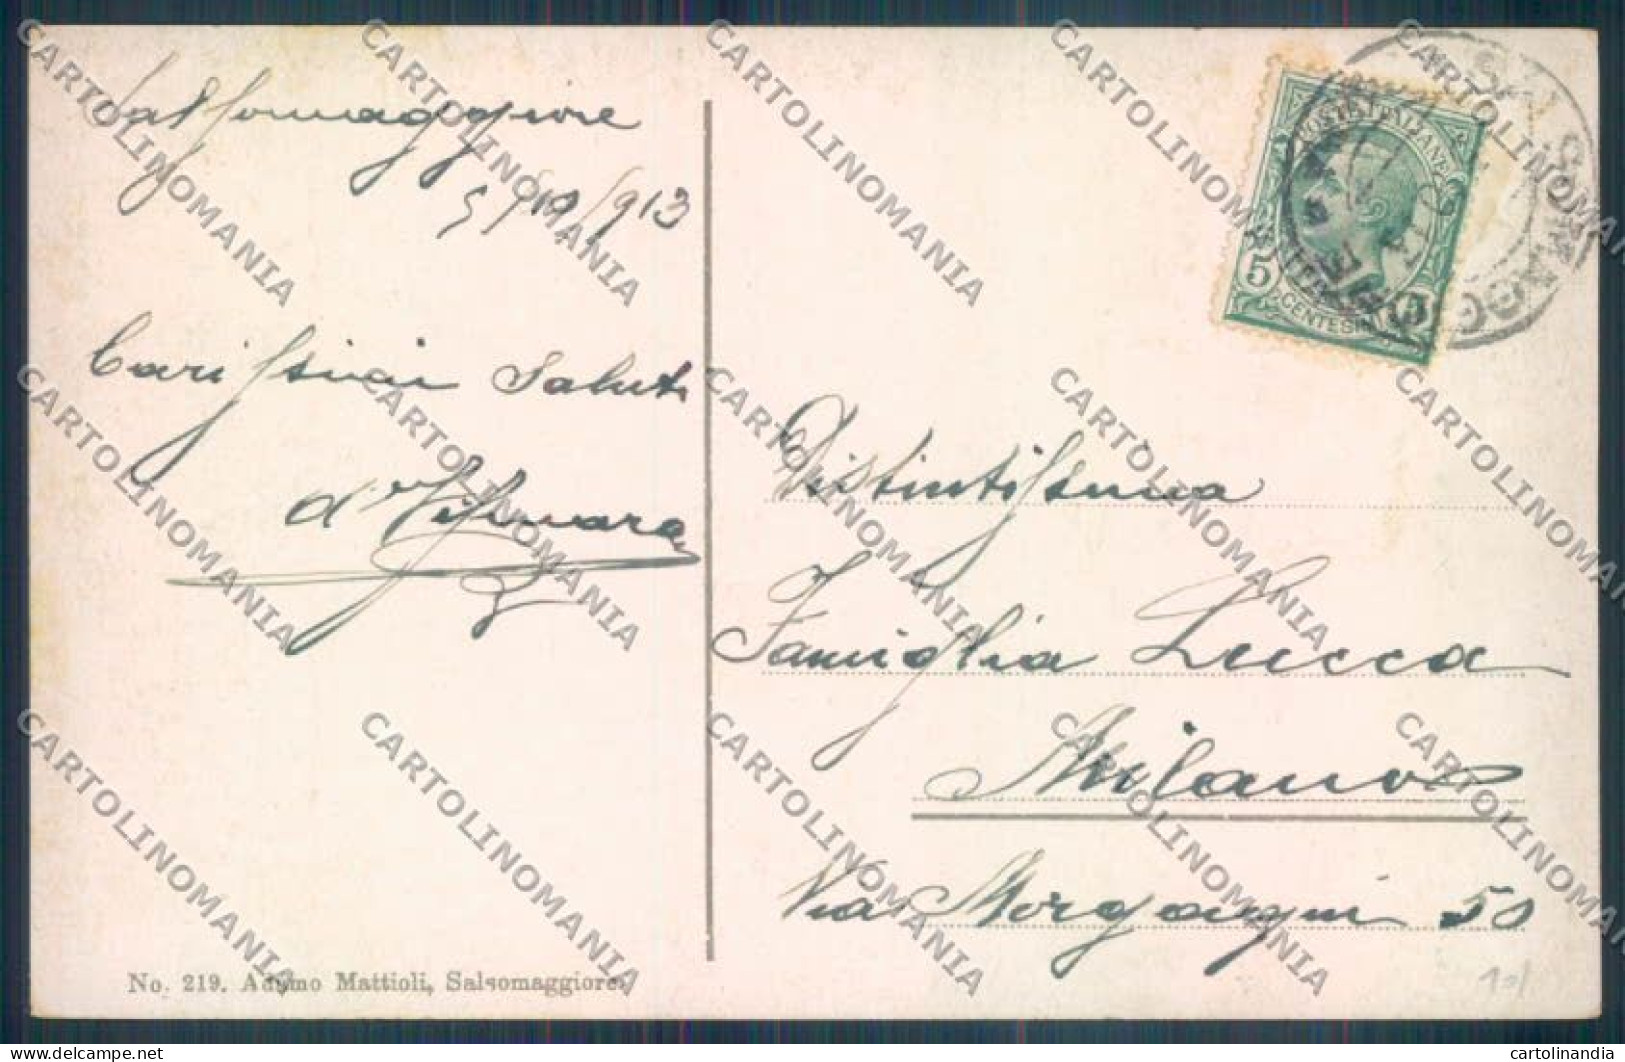 Salsomaggiore
5/10/913
Carissimi Saluti
No. 219. Adamo Mattioli, Salsomaggiore
POSTE ITALIANE
5 CENTESIMI 5
Distintissima
Famiglia Lucca
Milano
Via Morgagni 50
CARTOLINOMANIA
61 x 1062
cartolinandia